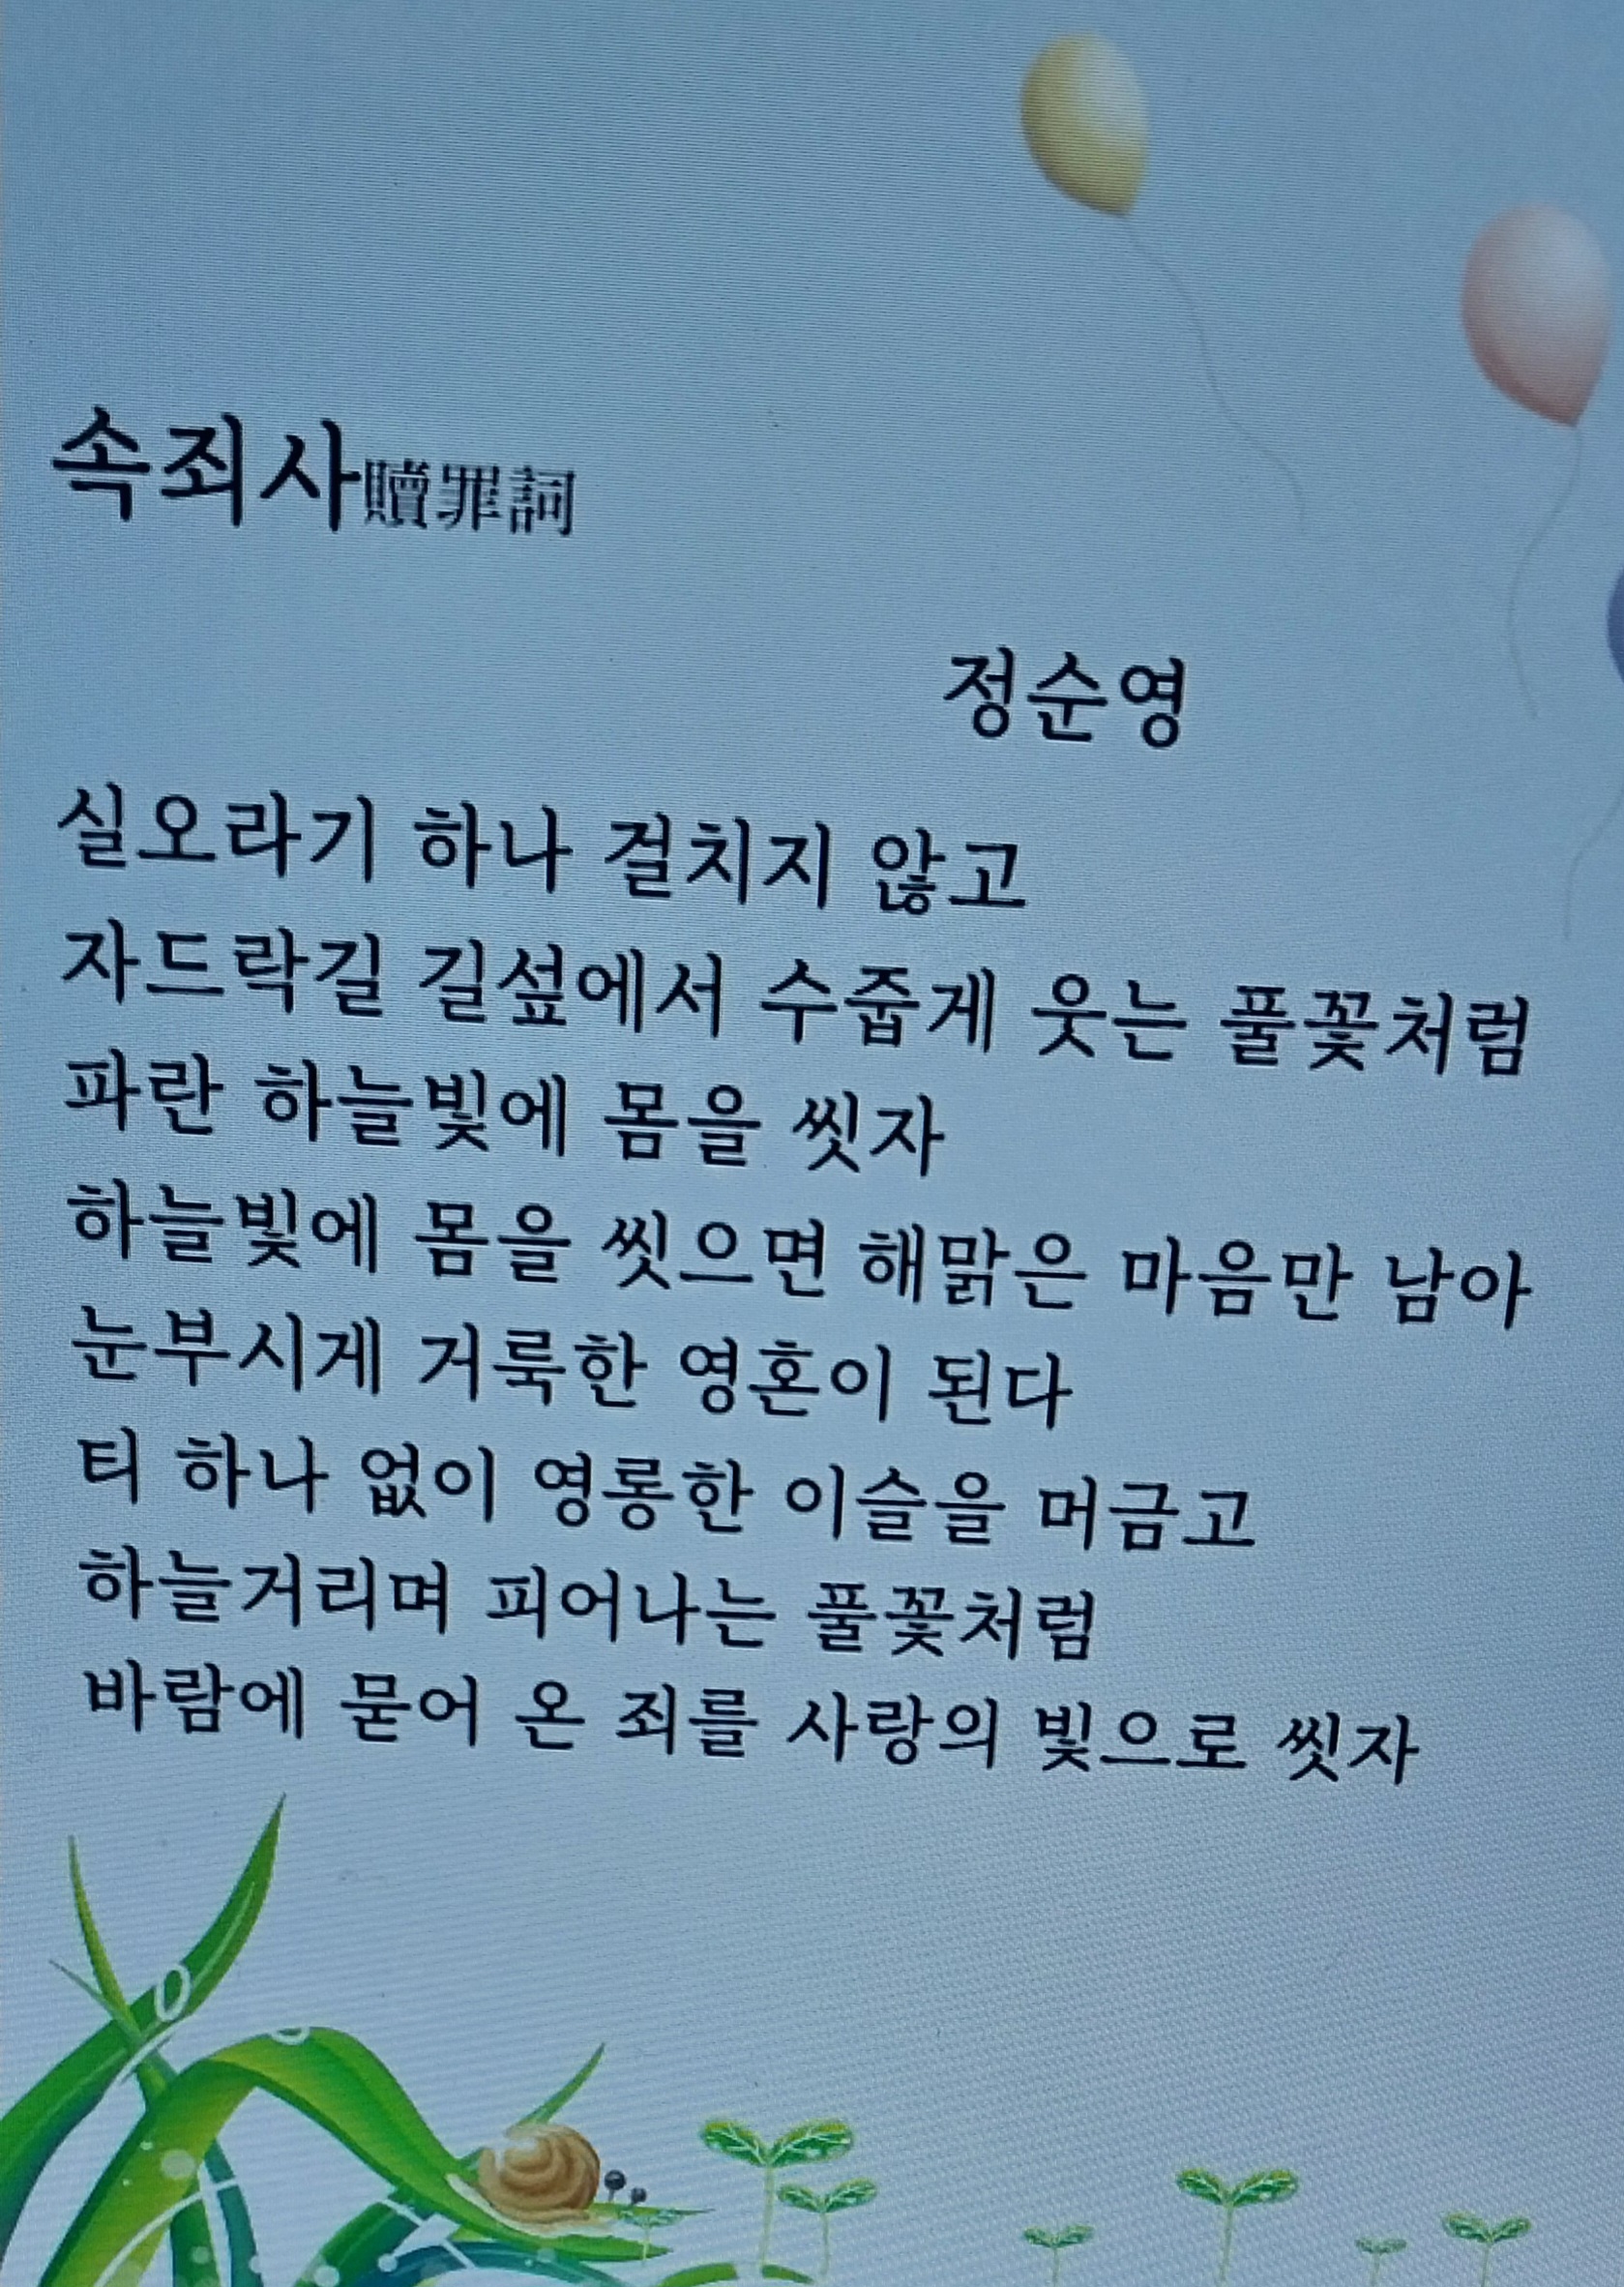 속죄사贖罪詞
정순영
실오라기 하나 걸치지 않고
자드락길 길섶에서 수줍게 웃는 풀꽃처럼
파란 하늘빛에 몸을 씻자
하늘빛에 몸을 씻으면 해맑은 마음만 남아
눈부시게 거룩한 영혼이 된다
티 하나 없이 영롱한 이슬을 머금고
하늘거리며 피어나는 풀꽃처럼
바람에 묻어 온 죄를 사랑의 빛으로 씻자